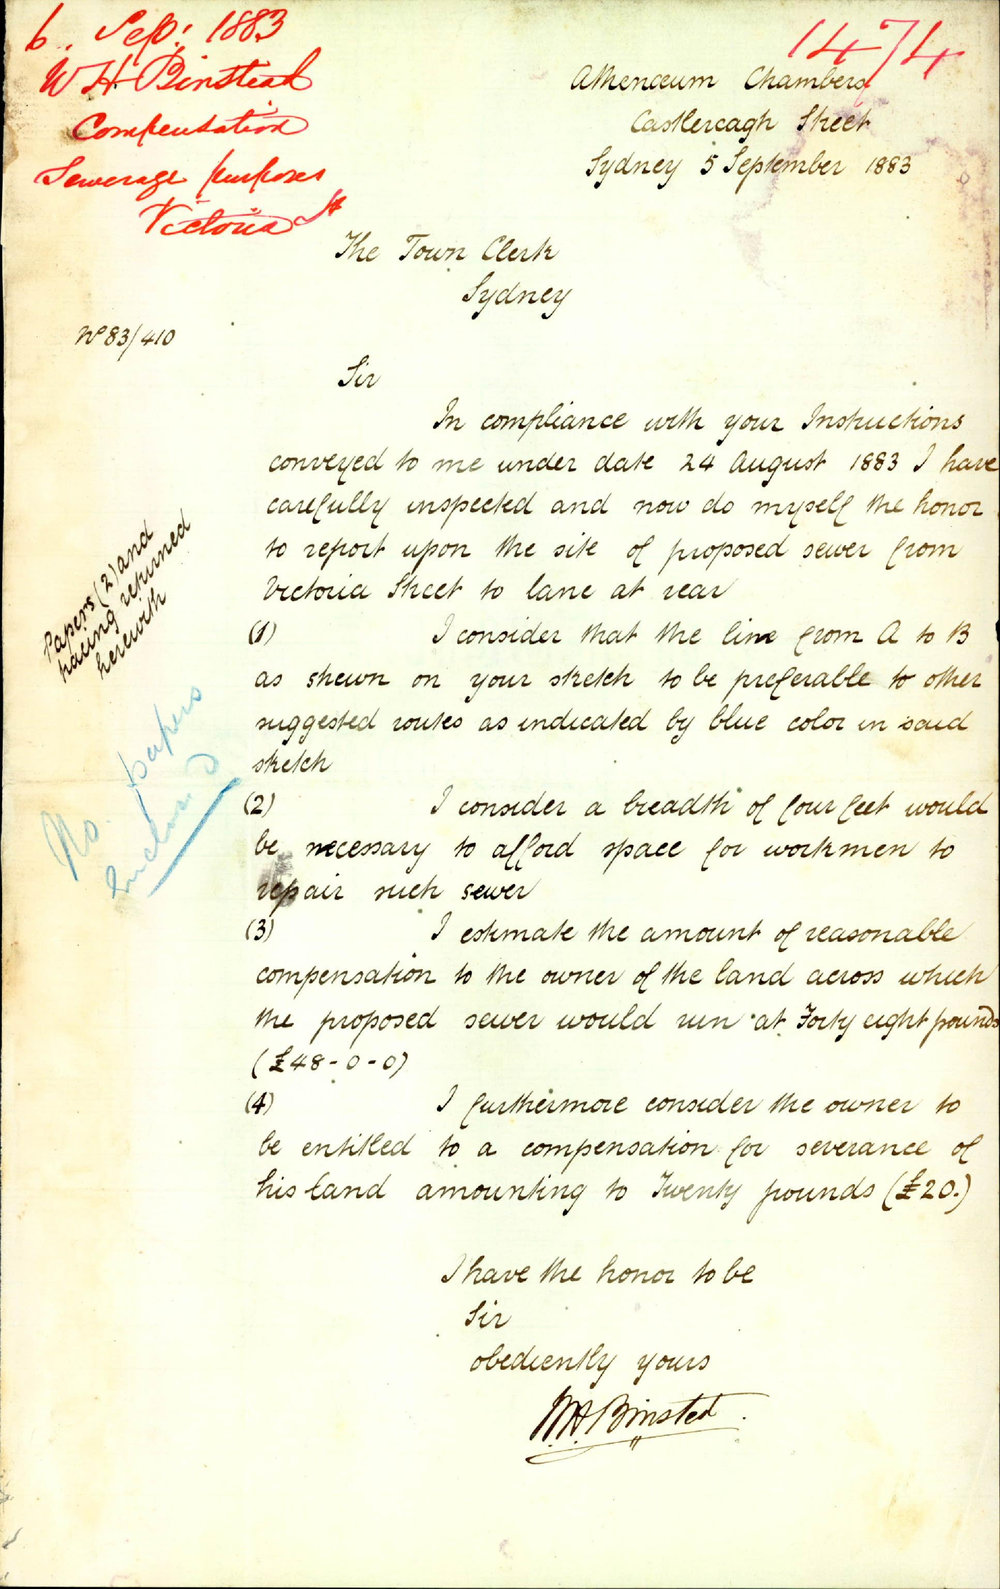 6. Sep: 1883
W H Binstead
Compensation
Sewerage purposes
Victoria St
1474
Athenœum Chambers
Castlereagh Street
Sydney 5 September 1883
The Town Clerk
Sydney
No 83/410
Sir
In compliance with your Instructions
conveyed to me under date 24 August 1883 I have
carefully inspected and now do myself the honor
to report upon the site of proposed sewer from
Victoria Street to lane at rear
(1) I consider that the line from A to B
as shewn on your sketch to be preferable to other
suggested routes as indicated by blue color in said
sketch
(2) I consider a breadth of four feet would
be necessary to afford space for workmen to
repair such sewer
(3) I estimate the amount of reasonable
compensation to the owner of the land across which
the proposed sewer would run at Forty eight pounds
(£48-0-0)
(4) I furthermore consider the owner to
be entitled to a compensation for severance of
his land amounting to Twenty pounds (£20.)
I have the honor to be
Sir
obediently yours
W.H. Binsted
Papers (2) and
tracing returned
herewith
No papers
Enclosed